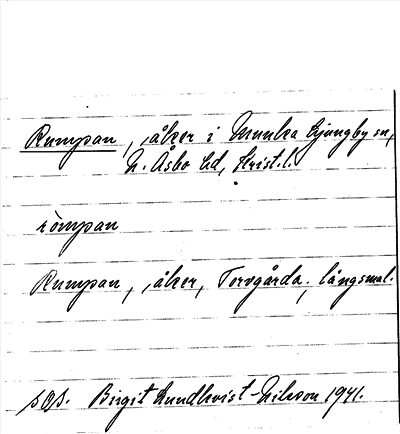 Rumpan, åker i Munka Ljungby sn,
N. Åsbo hd, Krist. l.
römpan
Rumpan, åker, Torvgårda, långsmal.
Birgit Lundkvist-Nilsson 1941.